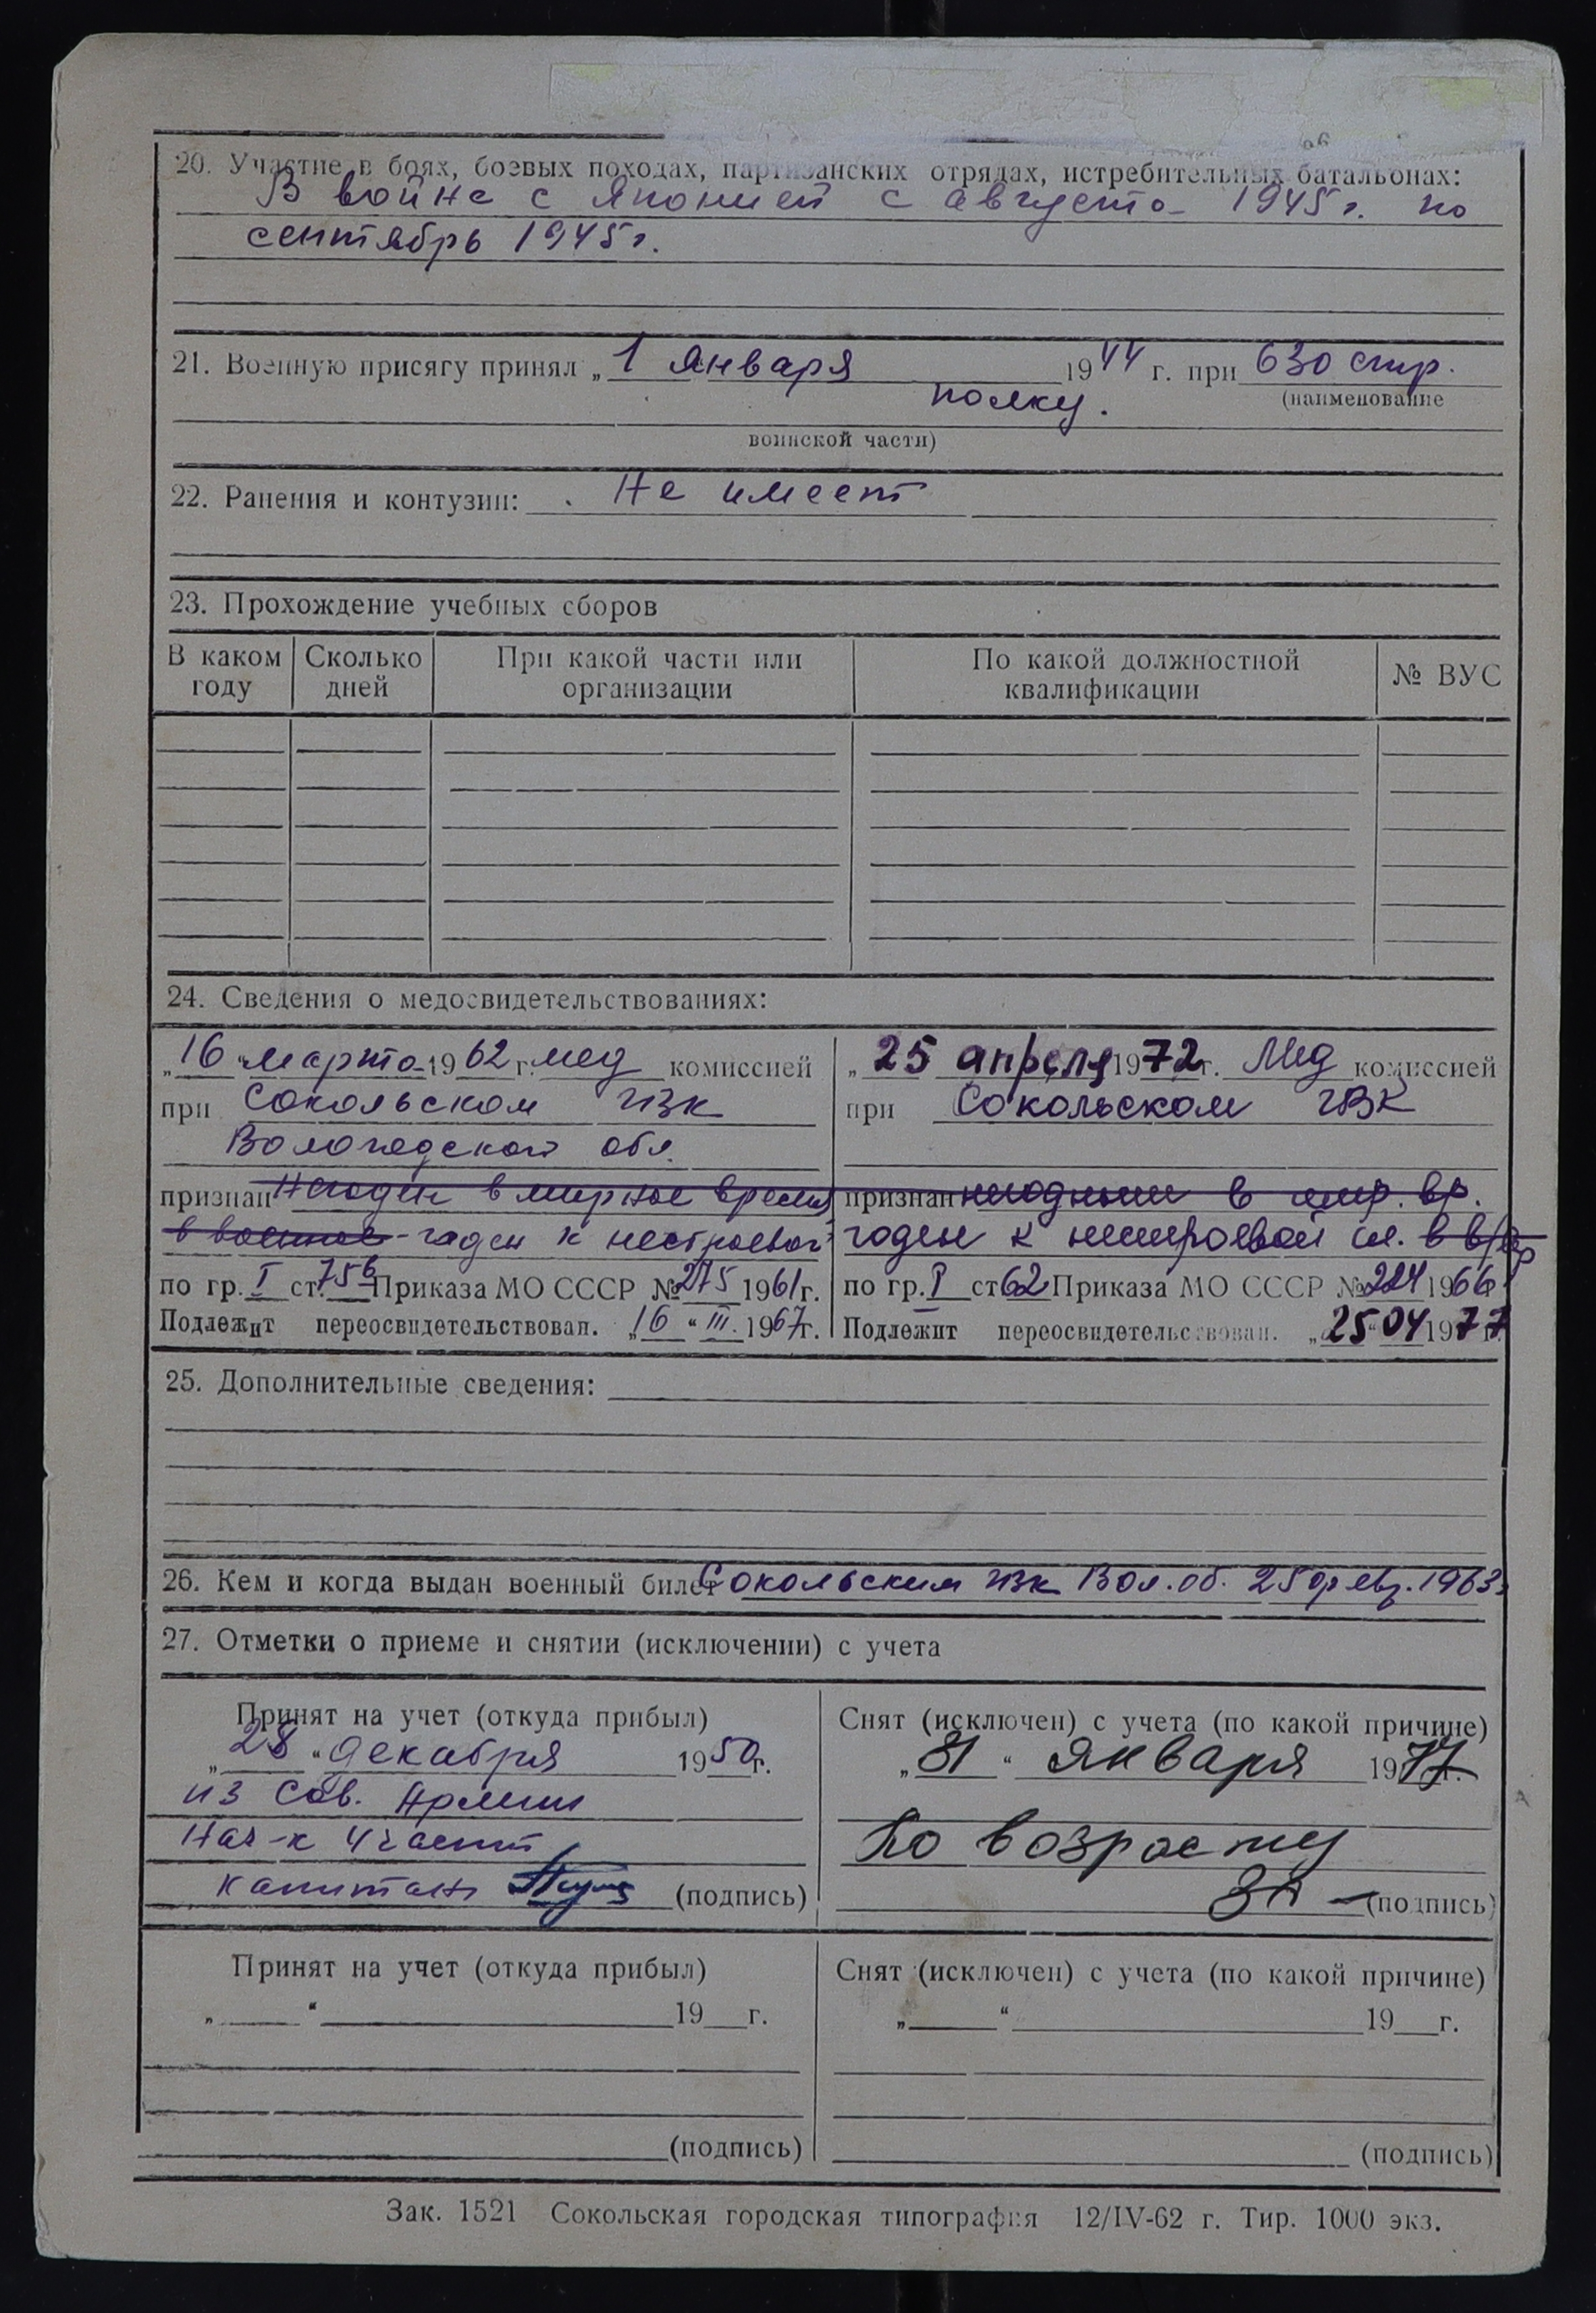 20. Участие в боях, боевых походах, партизанских отрядах, истребительных батальонах:
В войне с Японией с августа 1945 г. по
сентябрь 1945 г.
21. Военную присягу принял „1 января 1944 г. при 630 стр.
(наименование
полку.
воинской части)
22. Ранения и контузии: Не имеет
23. Прохождение учебных сборов
В каком году Сколько дней При какой части или организации По какой должностной квалификации № ВУС
24. Сведения о медосвидетельствованиях:
„16“ марта 1962 г. мед комиссией
при Сокольском ГВК
Вологодской обл.
признан Негоден в мирное время
в военное - годен к нестроевой
по гр. I ст. 75б Приказа МО СССР № 275 1961 г.
Подлежит переосвидетельствован. „16“ III. 1967 г.
„25 апреля 1972 г. Мед комиссией
при Сокольском ГВК
признан негодным в мир. вр.
годен к нестроевой сл. в в/вр
по гр. I ст 62 Приказа МО СССР № 224 1966 г
Подлежит переосвидетельствован. „25“ 04 1977 г.
25. Дополнительные сведения:
26. Кем и когда выдан военный билет Сокольским ГВК Вол. об. 25 февр. 1963 г
27. Отметки о приеме и снятии (исключении) с учета
Принят на учет (откуда прибыл)
„28“ декабря 1950 г.
из Сов. Армии
Нач-к 4 части
капитан (подпись)
Снят (исключен) с учета (по какой причине)
„31“ января 1977 г.
По возрасту
(подпись)
Принят на учет (откуда прибыл)
„ “ 19 г.
(подпись)
Снят (исключен) с учета (по какой причине)
„ “ 19 г.
(подпись)
Зак. 1521 Сокольская городская типография 12/IV-62 г. Тир. 1000 экз.